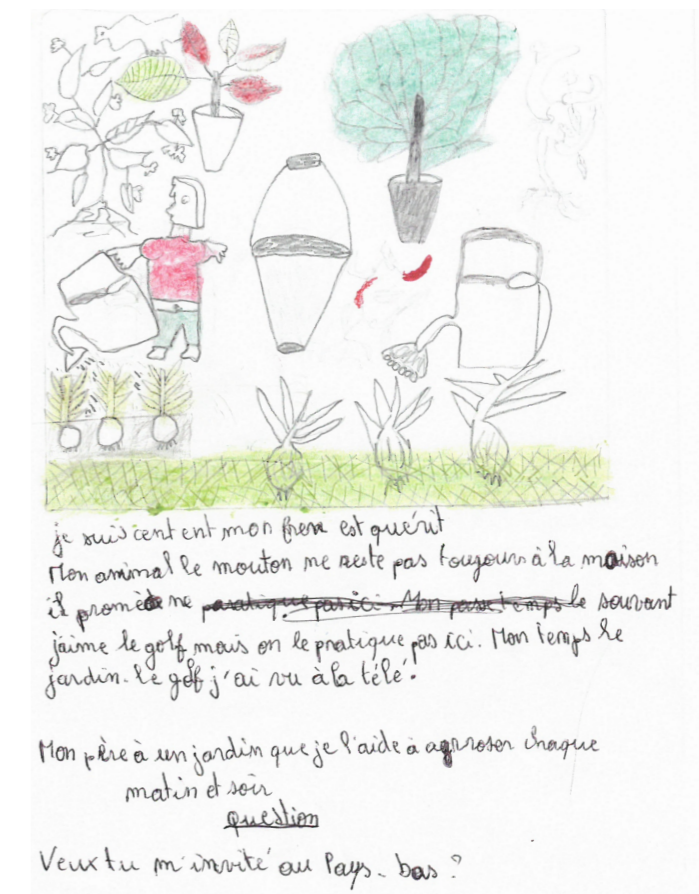 je suis cent ent mon frere est quérit
Mon animal le mouton ne reste pas toujours à la maison
il promède ne le souvant
j'aime le golf mais on le pratique pas ici. Mon temps le
jardin. le golf j'ai vu à la télé.
Mon père à un jardin que je l'aide à agrroser chaque
matin et soir
question
Veux tu m'invité au Pays-bas ?